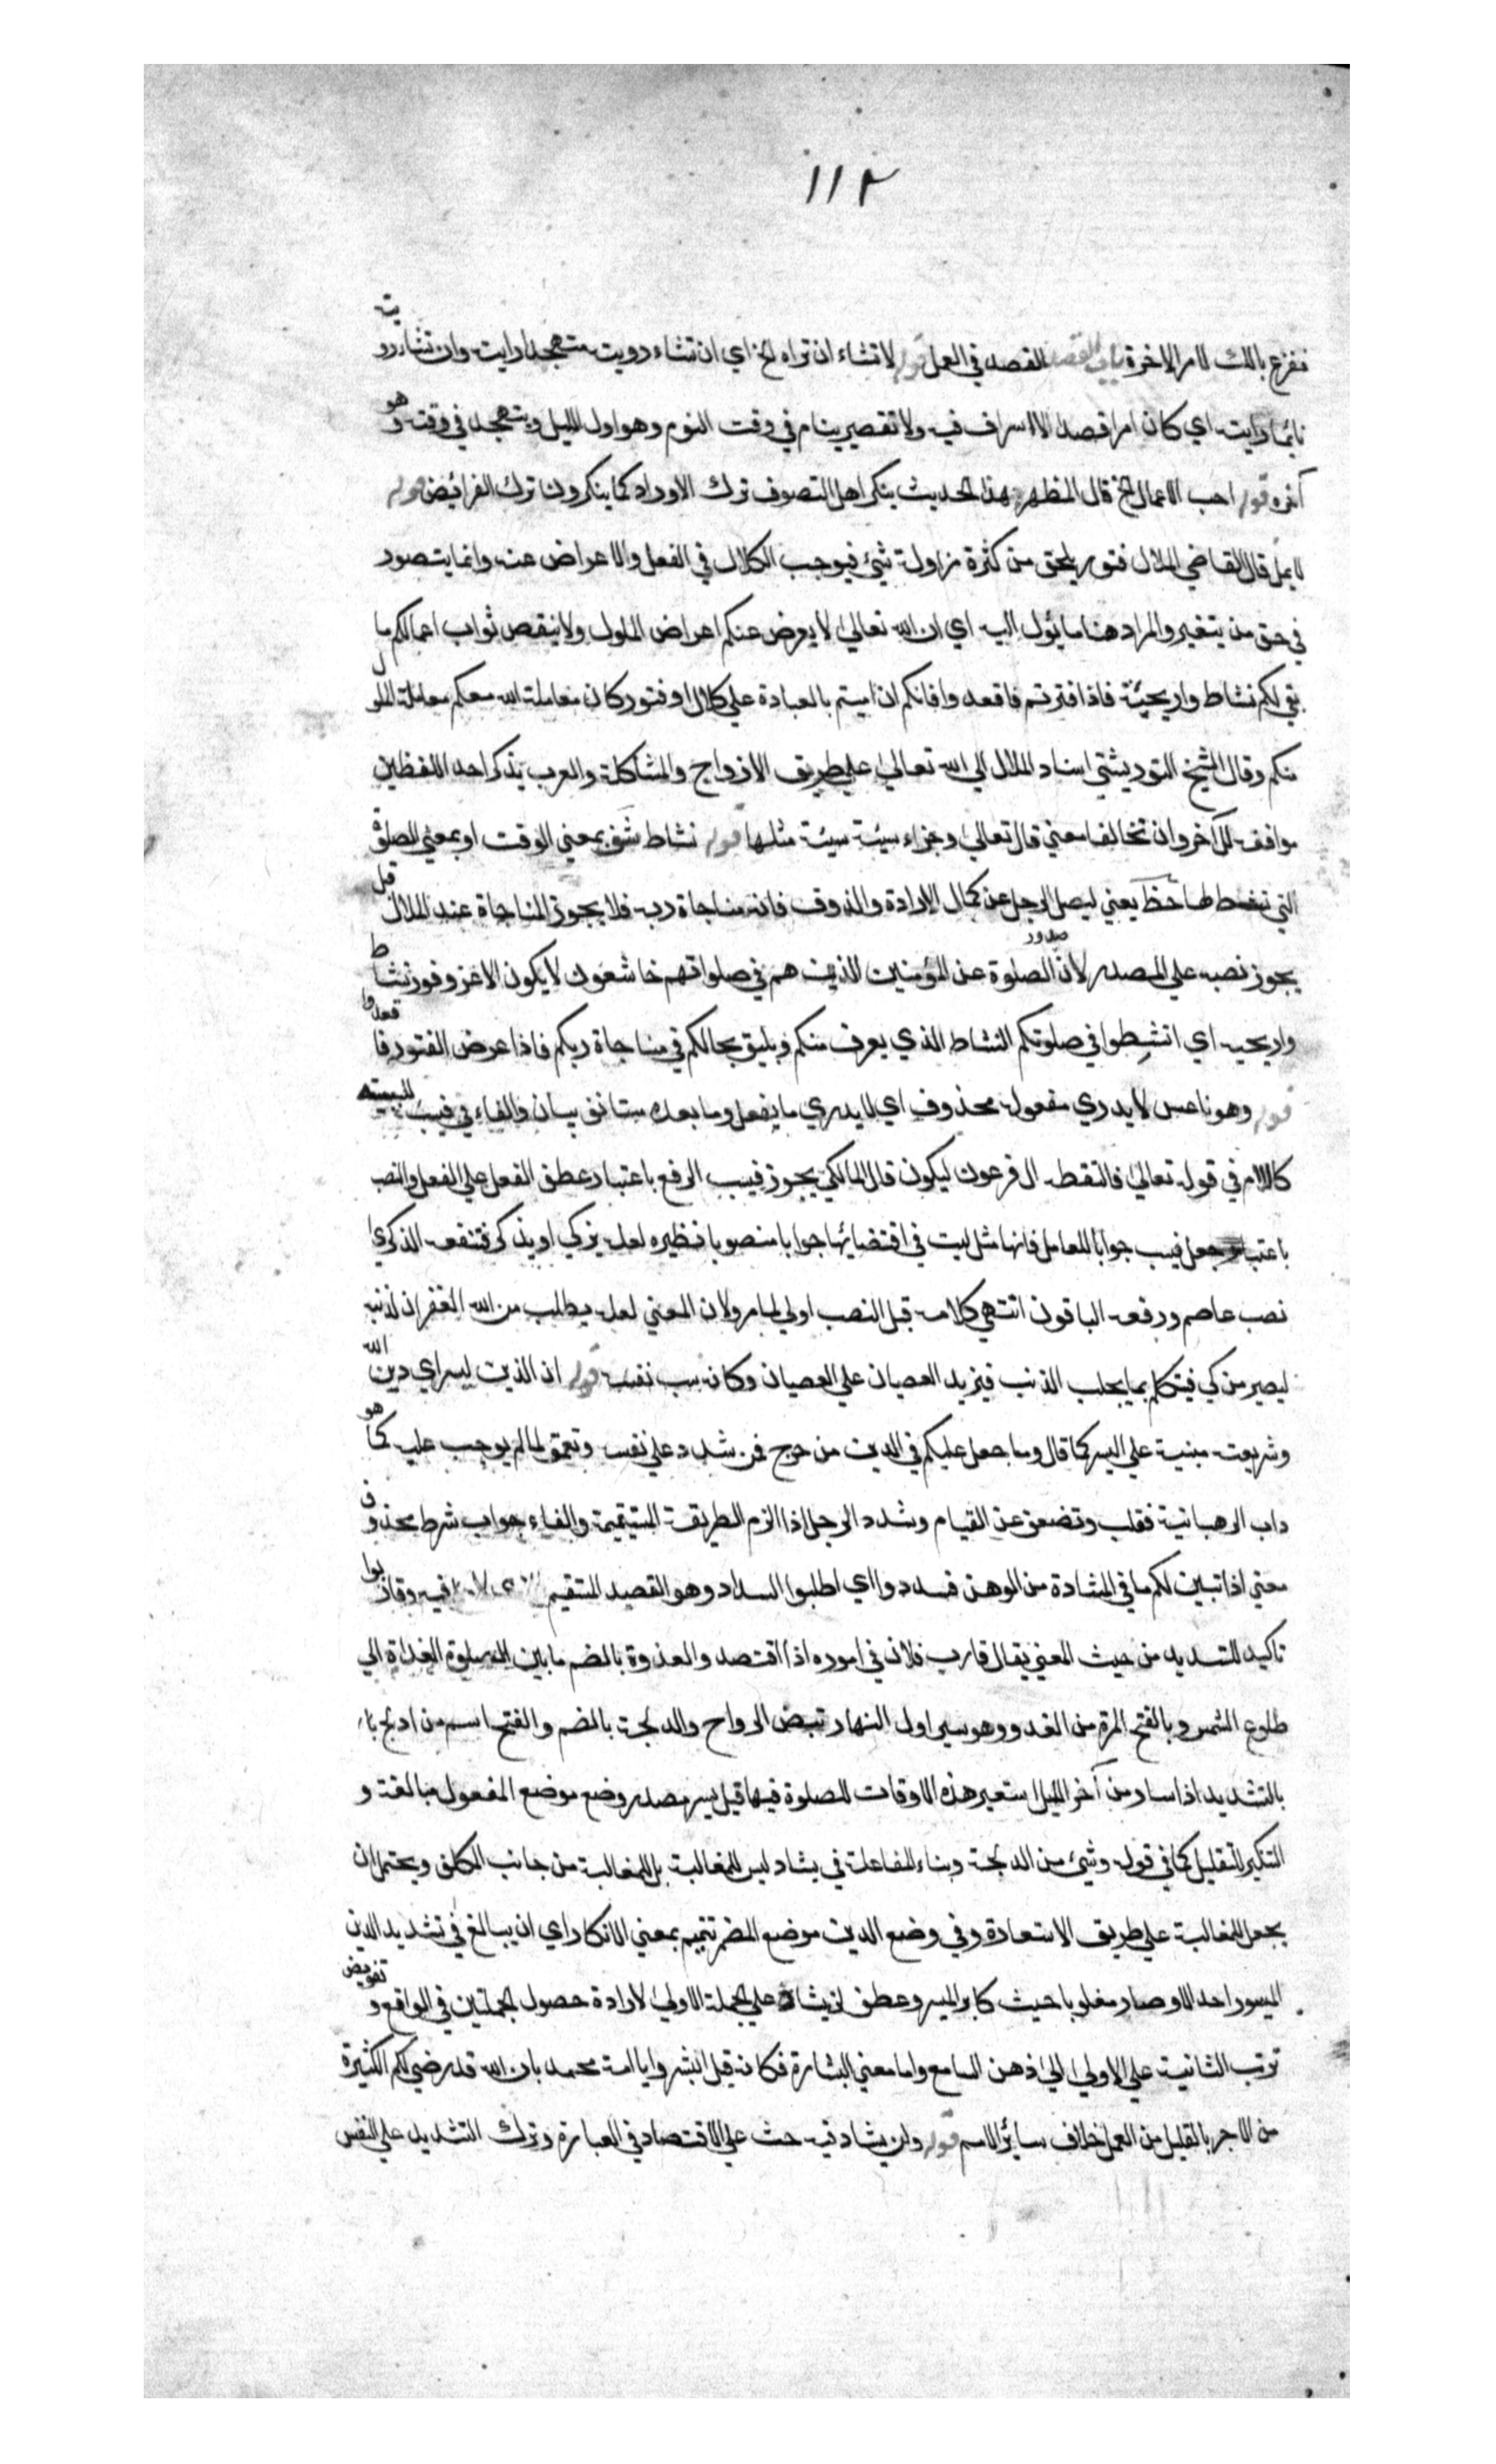 ١١٢
فزع بالك لامر الاخرة باب القصد القصد في العمل قوله لا تشاء ان تراه الخ اي ان تشاء رويت متهجدا رايت وان تشاء رويت
نائما رايت اي كان امرا قصدا لا اسراف فيه ولا تقصير ينام في وقت النوم وهو اول الليل ويتهجد في وقته وهو
آخره قوله احب الاعمال الخ قال المظهر بهذا الحديث ينكر اهل التصوف ترك الاوراد كما ينكرون ترك الفرائض قوله
لا يمل قال القاضي الملال فتور يلحق من كثرة مزاولة شيئ فيوجب الكلال في الفعل والاعراض عنه وانما يتصور
في حق من يتغير والمراد هنا ما يئول اليه اي ان الله تعالى لا يعرض عنكم اعراض الملول ولا ينقص ثواب اعمالكم ما
بقي لكم نشاط واريحيّة فاذا افترتم فاقعدوا فانكم ان اميتم بالعبادة على كلال او فتور كان معاملة الله معكم معاملة الملول
منكم وقال الشيخ التوربشتي اسناد الملال الى الله تعالى على طريق الازدواج والمشاكلة والعرب يذكر احد اللفظين
موافقه للآخر وان تخالفا معنى قال تعالى وجزاء سيئة سيئة مثلها قوله نشاطه بمعنى الوقت او بمعنى الصلوة
التي نشط لها يعني ليصل الرجل عن كمال الارادة والذوق فانه مناجاة ربه فلا يجوز المناجاة عند الملال قيل
يجوز نصبه على المصدر لان صدور الصلوة عن المؤمنين الذين هم في صلواتهم خاشعون لا يكون الا عن وفور نشاط
واريحيه اي انشطوا في صلوتكم النشاط الذي يعرف منكم ويليق بحالكم في مناجاة ربكم فاذا عرض الفتور فاقعدوا
قوله وهو ناعس لا يدري مفعوله محذوف اي لا يدري ما يفعل وما بعده مستانف بيان والفاء في فيسب للسببية
كاللام في قوله تعالى فالتقطه ال فرعون ليكون قال المالكي يجوز فيسب الرفع باعتبار عطف الفعل على الفعل والنصب
باعتبار جعل فيسب جوابا للعامل فانها مثل ليت في اقتضائها جوابا منصوبا نظيره لعله يزكى او يذكر فتنفعه الذكرى
نصب عاصم ورفعه الباقون انتهى كلامه قيل النصب اولى لما مر ولان المعنى لعله يطلب من الله الغفران لذنبه
ليصير مزكى فيتكلم بما يجلب الذنب فيزيد العصيان على العصيان وكانه سب نفسه قوله ان الدين يسر اي دين الله
وشريعته مبنية على اليسر كما قال وما جعل عليكم في الدين من حرج فمن شدد على نفسه وتعمق لما لم يوجب عليه كما هو
داب الرهبانية فغلب وتضعف عن القيام وشدد الرجل اذا الزم الطريقة المستقيمة والفاء جواب شرط محذوف
معنى اذا تبين لكم ما في المشادة من الوهن فسددوا اي اطلبوا السداد وهو القصد المستقيم فيه وقاربوا
تاكيد للتسديد من حيث المعنى يقال قارب فلان في اموره اذا اقتصد والغدوة بالضم ما بين صلوة الغداة الى
طلوع الشمس وبالفتح المرة من الغدو وهو سير اول النهار نقيض الرواح والدلجة بالضم والفتح اسم من ادلج
بالتشديد اذا سار من آخر الليل استعير هذه الاوقات للصلوة فيها قيل يسر مصدر وضع موضع المفعول مبالغة و
التنكير للتقليل كما في قوله وشيئ من الدلجة وبناء المفاعلة في يشاد ليس للمغالبة بل للمغالبة من جانب المكلف ويحتمل ان
يجعل للمغالبة على طريق الاستعارة وفي وضع الدين موضع المضمر تتميم بمعنى الانكار اي ان يبالغ في تشديد الدين
الميسور احد الا وصار مغلوبا حيث كابر اليسر وعطف لن يشاد على الجملة الاولى لارادة حصول الجملتين في الواقع و تفويض
ترتب الثانية على الاولى الى ذهن السامع واما معنى البشارة فكانه قيل ابشروا يا امة محمد بان الله قد رضي لكم الكثيرة
من الاجر بالقليل من العمل خلاف سائر الامم قوله ولن يشاد فيه حث على الاقتصاد في العبارة وترك التشديد على النفس